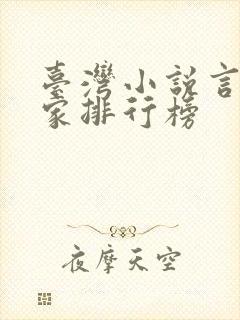 臺灣小說言
家排行榜
夜摩天空